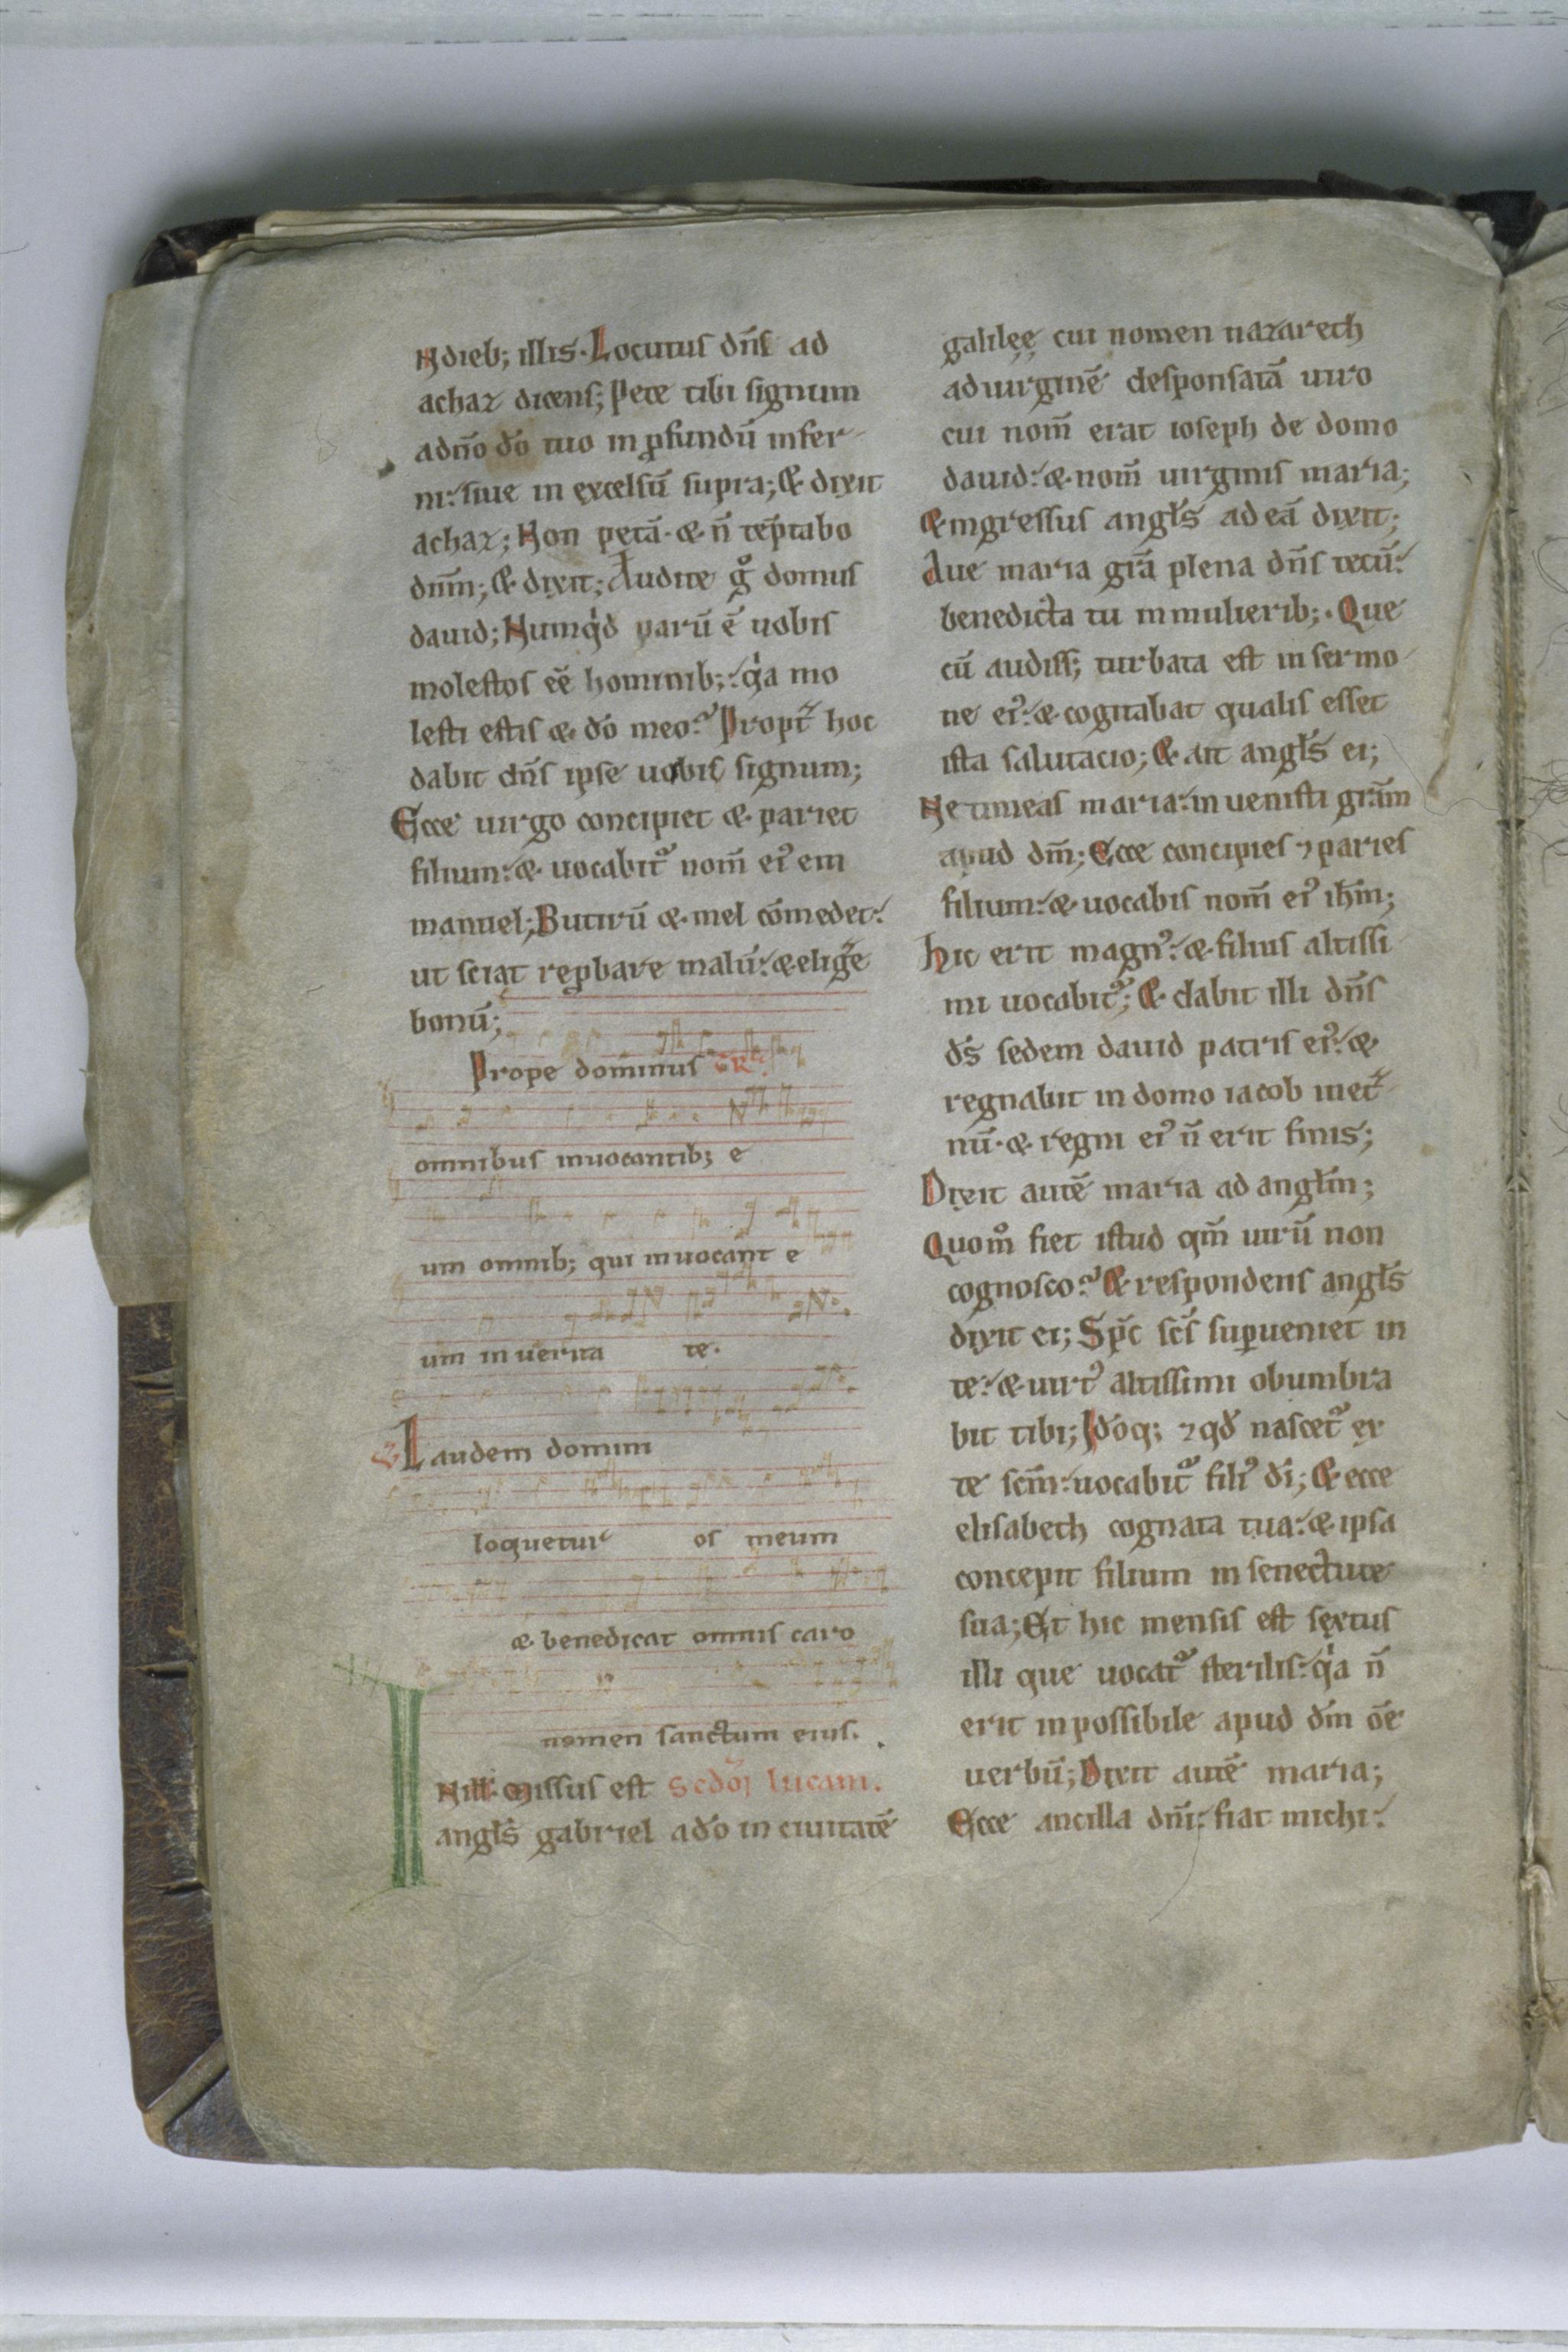 Ndieb; illis. Locutus dñs ad
achaz dicens; Pete tibi signum
adño dõ tuo in ꝓfundũ infer
ni: siue in excelsũ supra; & dixit
achaz; Non petã. & ñ tẽptabo
dñm; & dixit; Audite gͦ domus
dauid; Numqͥd parũ ẽ uobis
molestos eẽ hominib;: qͥa mo
lesti estis & dõ meo? Propt̃ hoc
dabit dñs ipse uobis signum;
Ecce uirgo concipiet & pariet
filium: & uocabit᷑ nom̃ eiꝰ em
manuel; Butirũ & mel cõmedet:
ut sciat reꝓbare malũ: & elig̃e
bonũ;
Prope dominus GR
omnibus inuocantib; e
um omnib; qui inuocant e
um in uerita te.
V Laudem domini
loquetur os meum
& benedicat omnis caro
nomen sanctum eius.
IN ill. Missus est scdm̃ lucam.
angłs gabriel adõ in ciuitatẽ
galilęę cui nomen nazareth
ad uirginẽ desponsatã uiro
cui nom̃ erat ioseph de domo
dauid: & nom̃ uirginis maria;
& ingressus angłs ad eã dixit;
Aue maria grã plena dñs tecũ:
benedicta tu in mulierib;. Que
cũ audiss; turbata est in sermo
ne eiꝰ: & cogitabat qualis esset
ista salutacio; & ait angłs ei;
Ne timeas maria: inuenisti grãm
apud dm̃; Ecce concipies ⁊ paries
filium: & uocabis nom̃ eiꝰ ih̃m;
Hic erit magnꝰ: & filius altissi
mi uocabit᷑; & dabit illi dñs
ds̃ sedem dauid patris eiꝰ: &
regnabit in domo iacob in et̃
nũ. & regni eiꝰ ñ erit finis;
Dixit autẽ maria ad angłm;
Quom̊ fiet istud qm̃ uirũ non
cognosco? & respondens angłs
dixit ei; Sp̃c sc̃s suꝑueniet in
te: & uirtꝰ altissimi obumbra
bit tibi; Idõq; ⁊ qd̃ nascet᷑ ex
te scm̃: uocabit᷑ filiꝰ dĩ; & ecce
elisabeth cognata tua: & ipsa
concepit filium in senectute
sua; Et hic mensis est sextus
illi que uocat᷑ sterilis: qͥa ñ
erit inpossibile apud dm̃ oẽ
uerbũ; Dixit autẽ maria;
Ecce ancilla dñi: fiat michi: